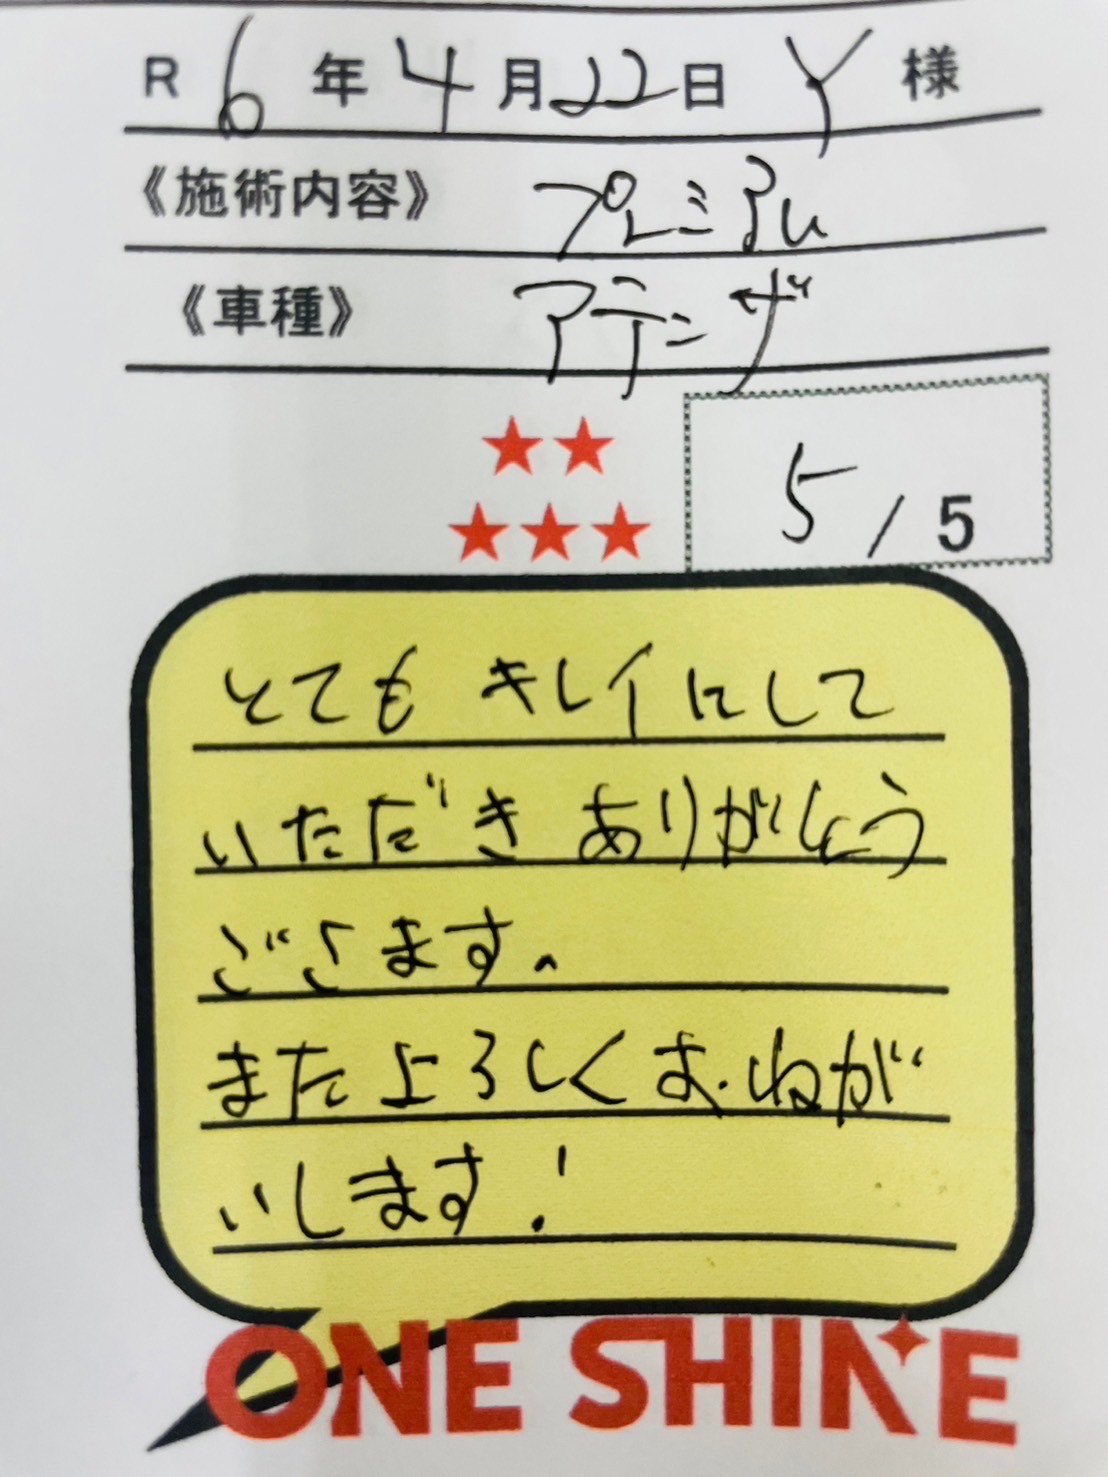 R 6 年 4 月 22 日 Y 様
《施術内容》 プレミアム
《車種》 アテンザ
★★
★★★ 5 / 5
とても キレイにして
いただき ありがとう
ございます。
また よろしく おねが
いします!
ONE SHINE